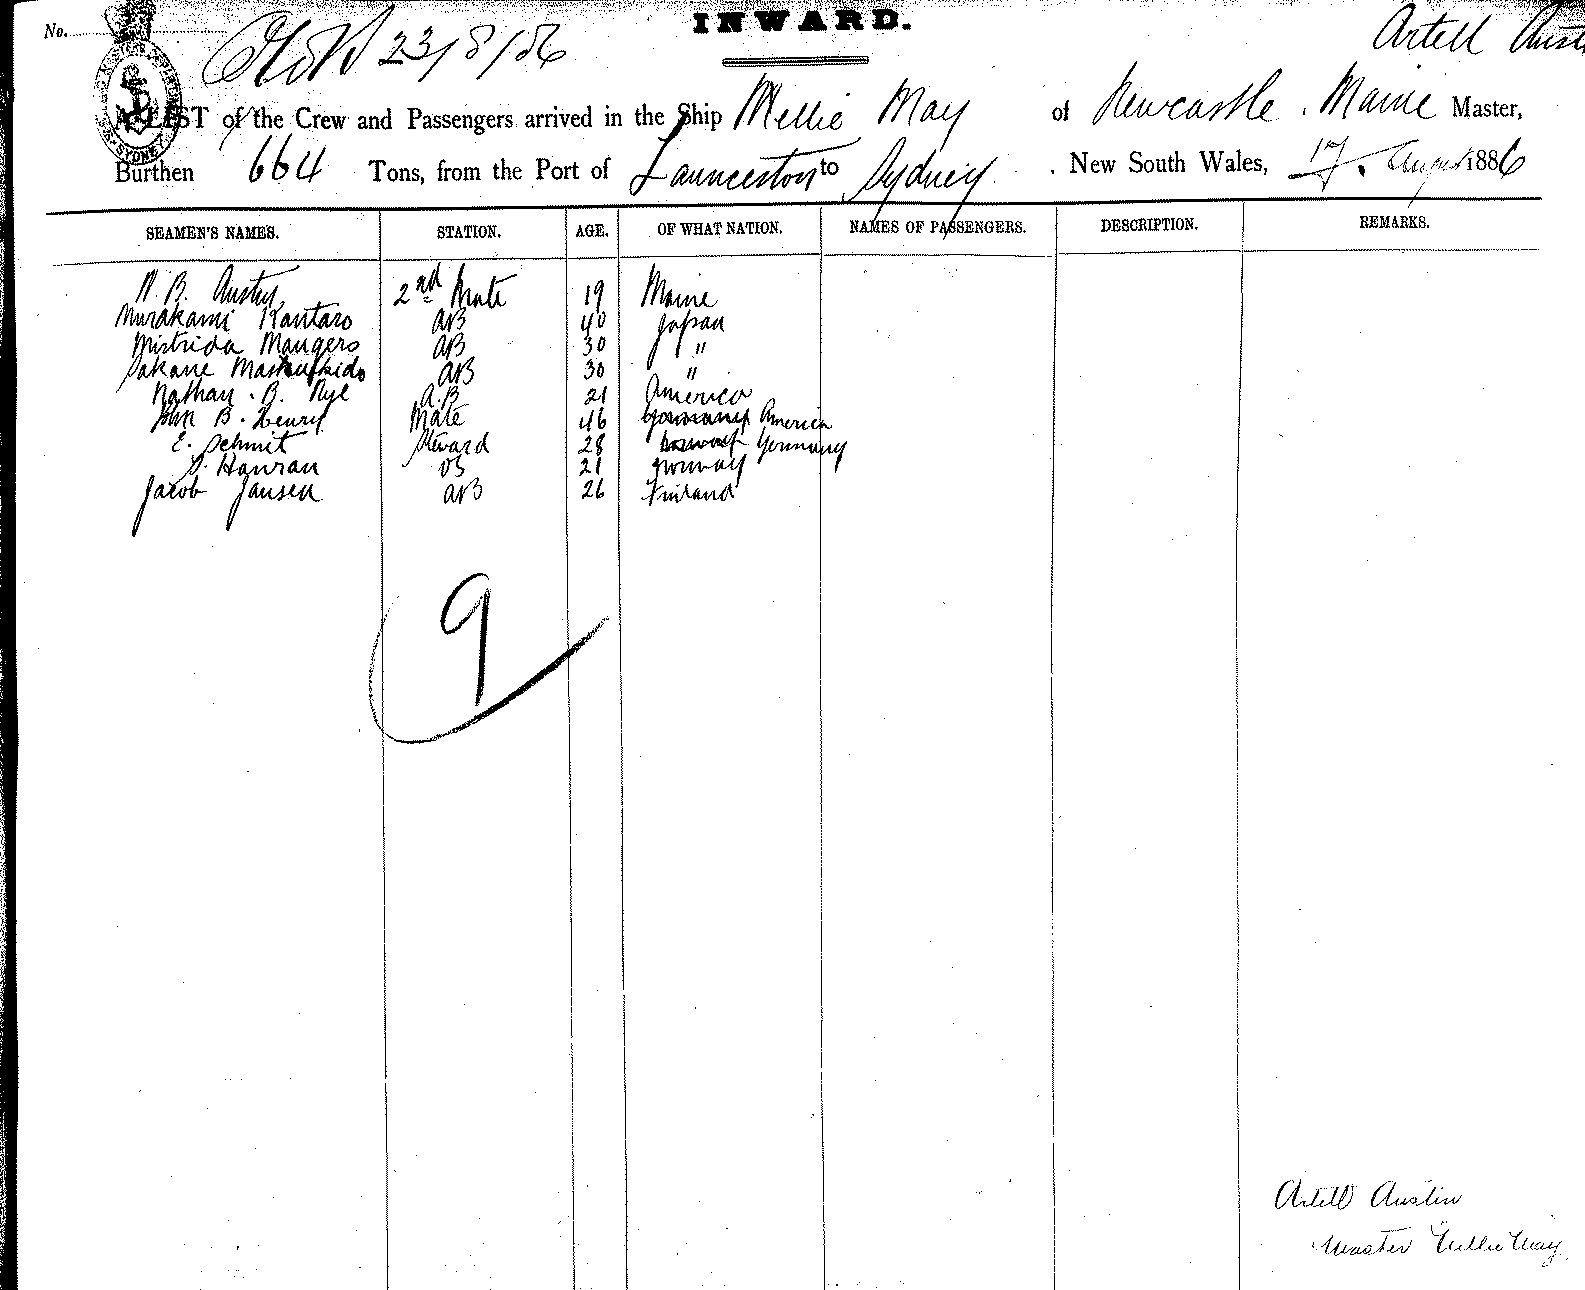 No.
INWARD.
23/8/86
Artell Aust
A LIST of the Crew and Passengers arrived in the Ship Nellie May of Newcastle. Maine Master,
Burthen 664 Tons, from the Port of Launceston to Sydney. New South Wales, 17. August 1886
SEAMEN'S NAMES. STATION. AGE. OF WHAT NATION. NAMES OF PASSENGERS. DESCRIPTION. REMARKS.
N. B. Austin 2nd Mate 19 Maine
Murakami Kantaro AB 40 Japan
Mistrida Maugero AB 30 "
Sakane AB 30 "
Nathan. B. Nye A.B 21 America
John B. Henry Mate 46 Germany America
E. Schmit Steward 28 Norway Germany
Hanran OS 21 Norway
Jacob Jansen AB 26 Finland
9
Artell Austin
Master Nellie May
SYDNEY